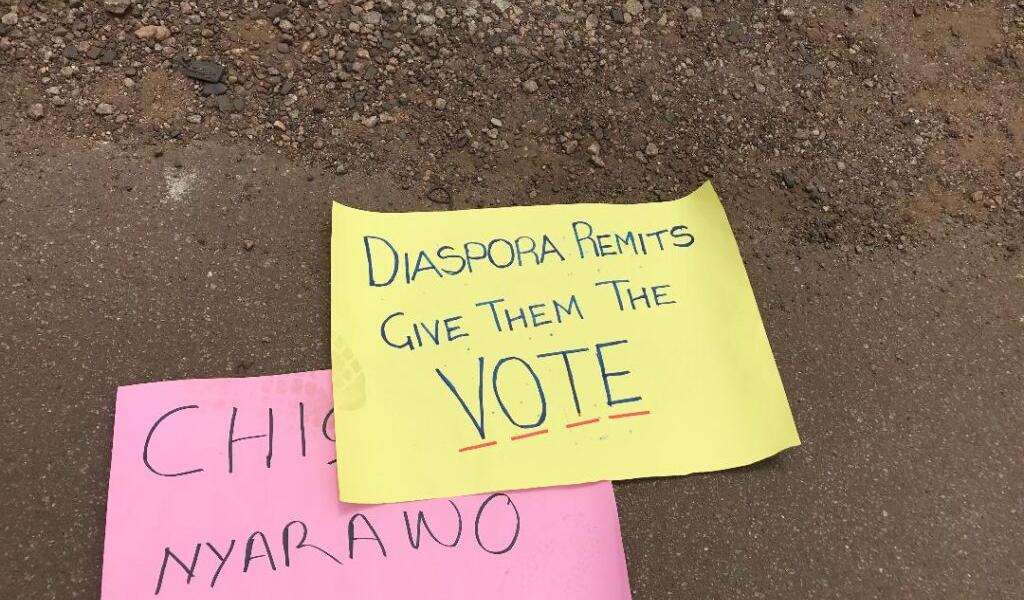 DIASPORA REMITS
GIVE THEM THE
VOTE
NYARAWO